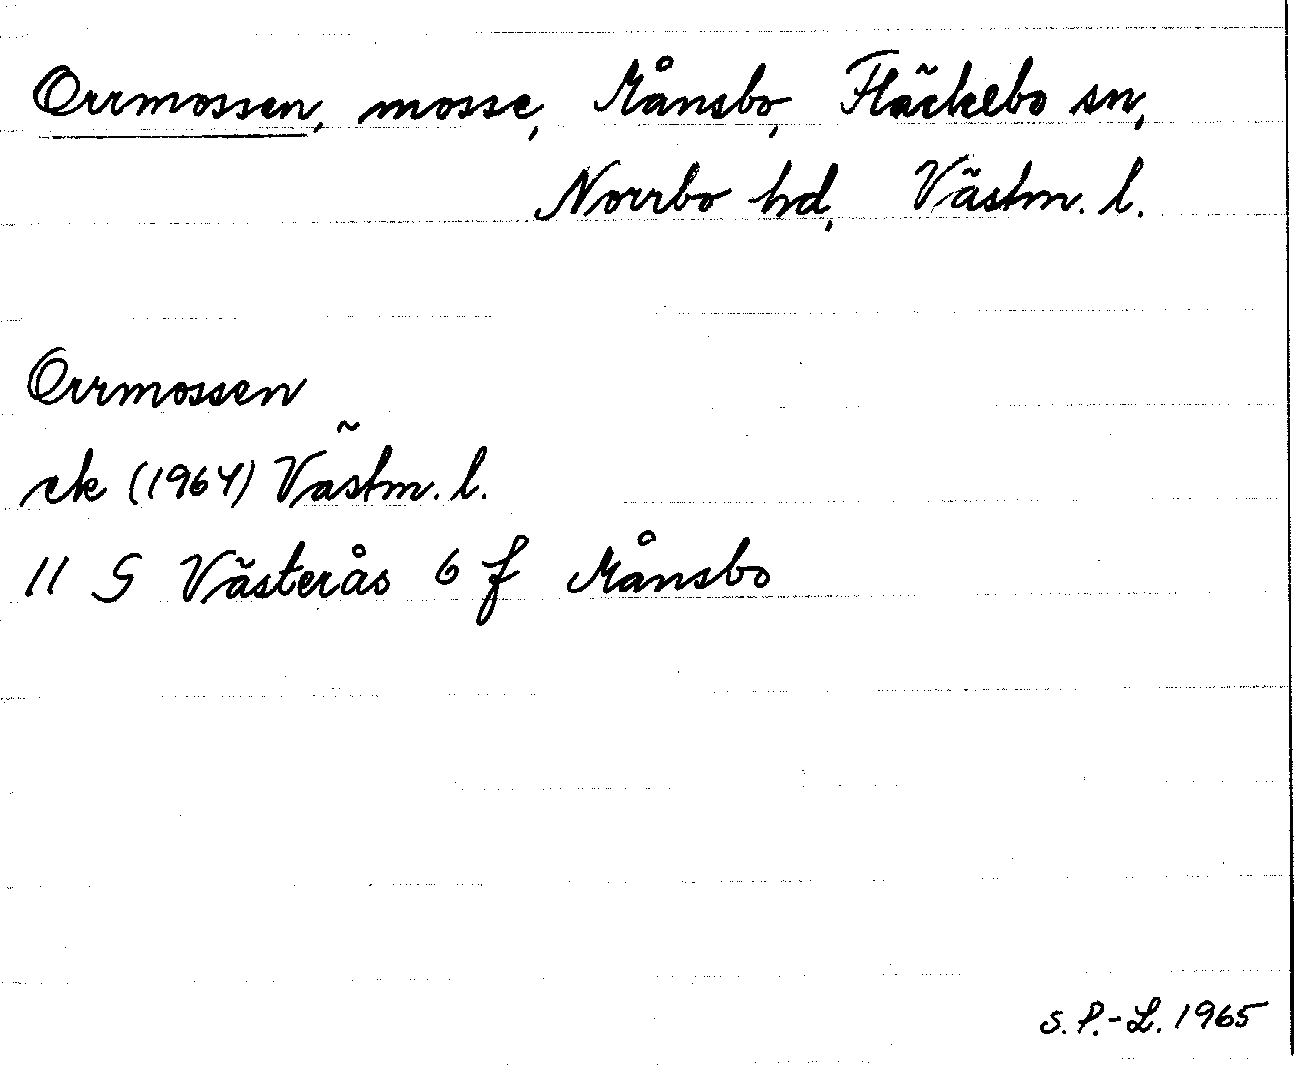 Orrmossen, mosse, Månsbo, Fläckebo sn,
Norrbo hd, Västm. l.
Orrmossen
ek (1964) Västm. l.
11 G Västerås 6 f Månsbo
S. P.-L. 1965